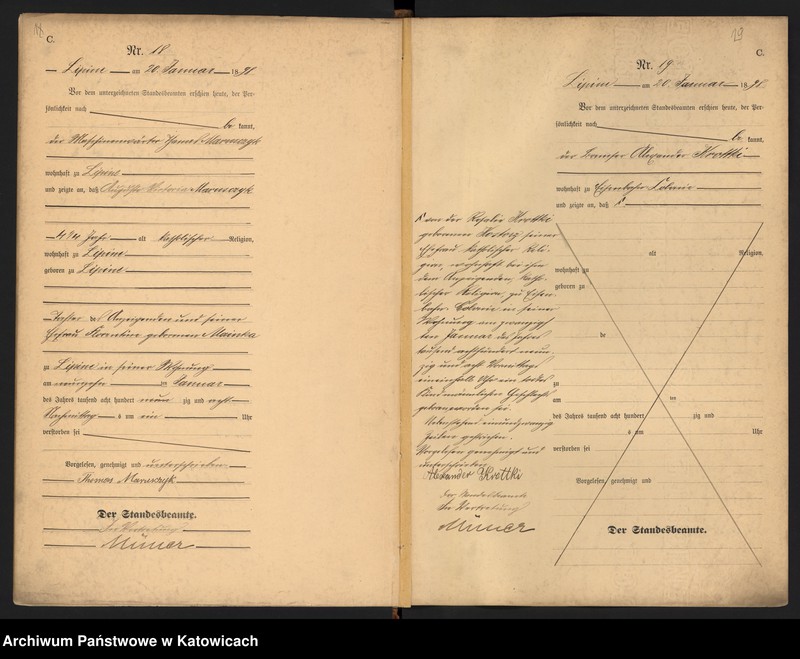 18
C.
Nr. 18
Lipine am 20. Januar 1898.
Vor dem unterzeichneten Standesbeamten erschien heute, der Per-
sönlichkeit nach
be kannt,
der Maschinenwärter Thomas Maruszyk
wohnhaft zu Lipine
und zeigte an, daß Victoria Maruszyk
alt katholischer Religion,
wohnhaft zu Lipine
geboren zu Lipine
Tochter des Anzeigenden und seiner
Ehefrau Florentine geborenen Mainka
zu Lipine in seiner Wohnung
am neunzehn ten Januar
des Jahres tausend acht hundert neun zig und acht
Nachmittag s um ein Uhr
verstorben sei
Vorgelesen, genehmigt und unterschrieben
Thomas Maruszyk
Der Standesbeamte.
In Vertretung
29
C.
Nr. 19
Lipine am 20. Januar 1898.
Vor dem unterzeichneten Standesbeamten erschien heute, der Per-
sönlichkeit nach
be kannt,
der Alexander Krottki
wohnhaft zu Colonie
und zeigte an, daß
von der Rosalie Krottki
geborenen seiner
Ehefrau katholischer Reli-
gion, wohnhaft bei ihm
dem Anzeigenden, katho-
lischer Religion, zu Eisen-
bahn Colonie in seiner
Wohnung am zwanzig-
ten Januar des Jahres
tausend achthundert neun-
zig und acht Vormittags
Uhr ein todtes
Kind männlichen Geschlechts
geboren worden sei.
Zeilen gestrichen.
Vorgelesen genehmigt und
unterschrieben
Alexander Krottki
Der Standesbeamte
In Vertretung
alt Religion,
wohnhaft zu
geboren zu
de
zu
am ten
des Jahres tausend acht hundert zig und
s um Uhr
verstorben sei
Vorgelesen, genehmigt und
Der Standesbeamte.
Archiwum Państwowe w Katowicach